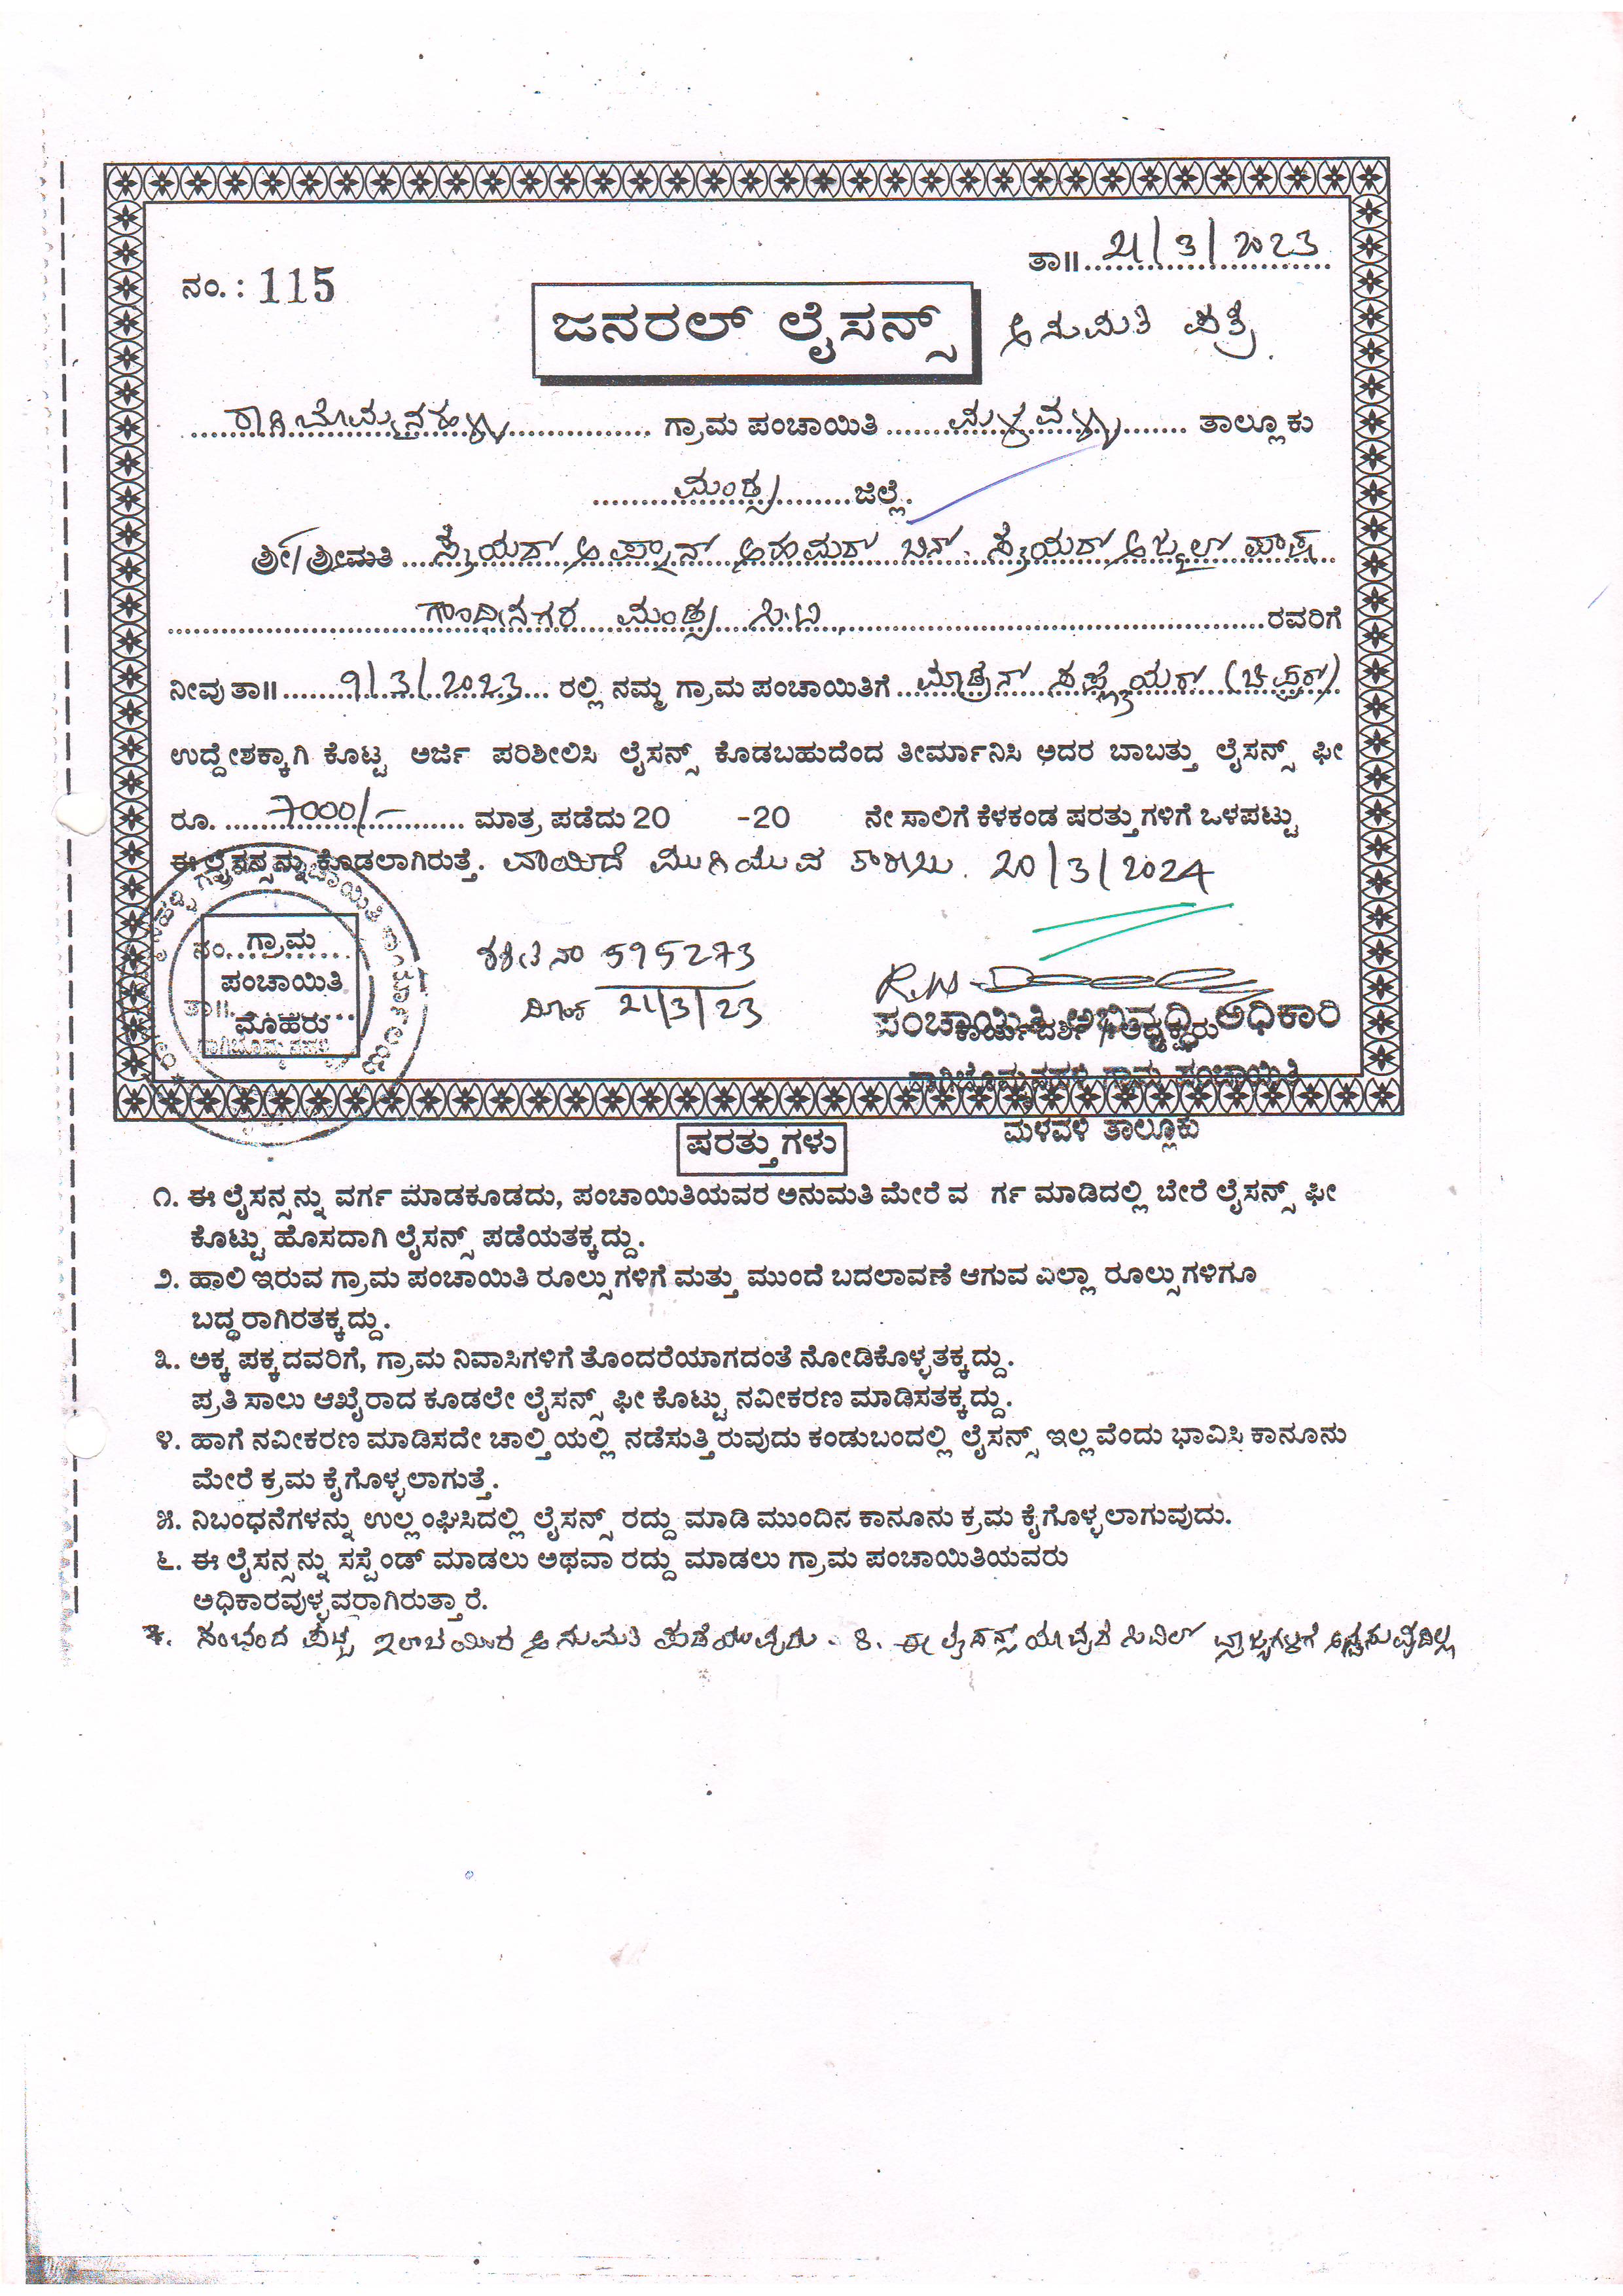 ತಾ॥ 21/3/2023
ನಂ. : 115
ಜನರಲ್ ಲೈಸನ್ಸ್ ಅನುಮತಿ ಪತ್ರ.
ರಾಗಿಬೊಮ್ಮನಹಳ್ಳಿ ಗ್ರಾಮ ಪಂಚಾಯಿತಿ ಮಳವಳ್ಳಿ ತಾಲ್ಲೂಕು
ಮಂಡ್ಯ ಜಿಲ್ಲೆ.
ಶ್ರೀ/ಶ್ರೀಮತಿ ಸೈಯದ್ ಅಫ್ನಾನ್ ಅಹಮದ್ ಬಿನ್. ಸೈಯದ್ ಅಫ್ಜಲ್ ಪಾಷ
ಗಾಂಧಿನಗರ ಮಂಡ್ಯ ಸಿಟಿ, ರವರಿಗೆ
ನೀವು ತಾ॥ 9/3/2023 ರಲ್ಲಿ ನಮ್ಮ ಗ್ರಾಮ ಪಂಚಾಯಿತಿಗೆ
ಉದ್ದೇಶಕ್ಕಾಗಿ ಕೊಟ್ಟ ಅರ್ಜಿ ಪರಿಶೀಲಿಸಿ ಲೈಸನ್ಸ್ ಕೊಡಬಹುದೆಂದ ತೀರ್ಮಾನಿಸಿ ಅದರ ಬಾಬತ್ತು ಲೈಸನ್ಸ್ ಫೀ
ರೂ. 7000/- ಮಾತ್ರ ಪಡೆದು 20 -20 ನೇ ಸಾಲಿಗೆ ಕೆಳಕಂಡ ಷರತ್ತುಗಳಿಗೆ ಒಳಪಟ್ಟು
ಈ ಲೈಸನ್ಸನ್ನು ಕೊಡಲಾಗಿರುತ್ತೆ. ವಾಯಿದೆ ಮುಗಿಯುವ ತಾರೀಖು. 20/3/2024
ನಂ. ಗ್ರಾಮ
ಪಂಚಾಯಿತಿ
ತಾ॥ ಮೊಹರು
ರಶೀತಿ ನಂ 595273
ದಿನಾಂಕ 21/3/23
ಪಂಚಾಯಿತಿ ಅಭಿವೃದ್ಧಿ ಅಧಿಕಾರಿ
ಕಾರ್ಯದರ್ಶಿ / ಅಧ್ಯಕ್ಷರು
ರಾಗಿಬೊಮ್ಮನಹಳ್ಳಿ ಗ್ರಾಮ ಪಂಚಾಯಿತಿ
ಮಳವಳಿ ತಾಲ್ಲೂಕು
ಷರತ್ತುಗಳು
೧. ಈ ಲೈಸನ್ಸನ್ನು ವರ್ಗ ಮಾಡಕೂಡದು, ಪಂಚಾಯಿತಿಯವರ ಅನುಮತಿ ಮೇರೆ ವ ರ್ಗ ಮಾಡಿದಲ್ಲಿ ಬೇರೆ ಲೈಸನ್ಸ್ ಫೀ
ಕೊಟ್ಟು ಹೊಸದಾಗಿ ಲೈಸನ್ಸ್ ಪಡೆಯತಕ್ಕದ್ದು.
೨. ಹಾಲಿ ಇರುವ ಗ್ರಾಮ ಪಂಚಾಯಿತಿ ರೂಲ್ಸುಗಳಿಗೆ ಮತ್ತು ಮುಂದೆ ಬದಲಾವಣೆ ಆಗುವ ಎಲ್ಲಾ ರೂಲ್ಸುಗಳಿಗೂ
ಬದ್ಧರಾಗಿರತಕ್ಕದ್ದು.
೩. ಅಕ್ಕ ಪಕ್ಕದವರಿಗೆ, ಗ್ರಾಮ ನಿವಾಸಿಗಳಿಗೆ ತೊಂದರೆಯಾಗದಂತೆ ನೋಡಿಕೊಳ್ಳತಕ್ಕದ್ದು.
ಪ್ರತಿ ಸಾಲು ಆಖೈರಾದ ಕೂಡಲೇ ಲೈಸನ್ಸ್ ಫೀ ಕೊಟ್ಟು ನವೀಕರಣ ಮಾಡಿಸತಕ್ಕದ್ದು.
೪. ಹಾಗೆ ನವೀಕರಣ ಮಾಡಿಸದೇ ಚಾಲ್ತಿಯಲ್ಲಿ ನಡೆಸುತ್ತಿರುವುದು ಕಂಡುಬಂದಲ್ಲಿ ಲೈಸನ್ಸ್ ಇಲ್ಲವೆಂದು ಭಾವಿಸಿ ಕಾನೂನು
ಮೇರೆ ಕ್ರಮ ಕೈಗೊಳ್ಳಲಾಗುತ್ತೆ.
೫. ನಿಬಂಧನೆಗಳನ್ನು ಉಲ್ಲಂಘಿಸಿದಲ್ಲಿ ಲೈಸನ್ಸ್ ರದ್ದು ಮಾಡಿ ಮುಂದಿನ ಕಾನೂನು ಕ್ರಮ ಕೈಗೊಳ್ಳಲಾಗುವುದು.
೬. ಈ ಲೈಸನ್ಸನ್ನು ಸಸ್ಪೆಂಡ್ ಮಾಡಲು ಅಥವಾ ರದ್ದು ಮಾಡಲು ಗ್ರಾಮ ಪಂಚಾಯಿತಿಯವರು
ಅಧಿಕಾರವುಳ್ಳವರಾಗಿರುತ್ತಾರೆ.
7. ಸಂಭಂದ ಪಟ್ಟ ಇಲಾಖೆಯಿಂದ ಅನುಮತಿ ಪಡೆಯುವುದು - 8. ಈ ಲೈಸನ್ಸ್ ಯಾವುದೆ ಸಿವಿಲ್ ವ್ಯಾಜ್ಯಗಳಿಗೆ ಅನ್ವಹಿಸುವುದಿಲ್ಲ